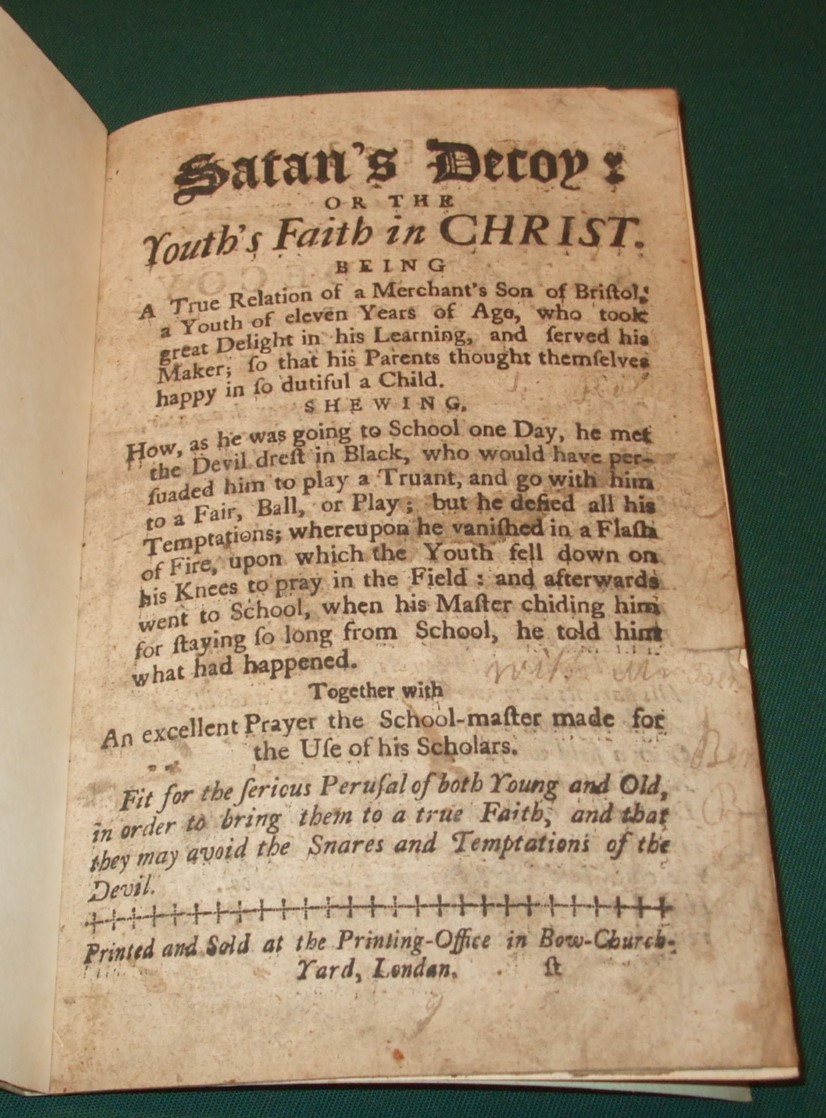 Satan's Decoy:
OR THE
Youth's Faith in CHRIST.
BEING
A True Relation of a Merchant's Son of Briſtol,
a Youth of eleven Years of Age, who took
great Delight in his Learning, and ſerved his
Maker; ſo that his Parents thought themſelves
happy in ſo dutiful a Child.
SHEWING,
How, as he was going to School one Day, he met
the Devil dreſt in Black, who would have per-
ſuaded him to play a Truant, and go with him
to a Fair, Ball, or Play; but he defied all his
Temptations; whereupon he vaniſhed in a Flaſh
of Fire, upon which the Youth fell down on
his Knees to pray in the Field: and afterwards
went to School, when his Maſter chiding him
for ſtaying ſo long from School, he told him
what had happened.
Together with
An excellent Prayer the School-maſter made for
the Uſe of his Scholars.
Fit for the ſerious Peruſal of both Young and Old,
in order to bring them to a true Faith, and that
they may avoid the Snares and Temptations of the
Devil.
Printed and Sold at the Printing-Office in Bow-Church-
Yard, London. ſt